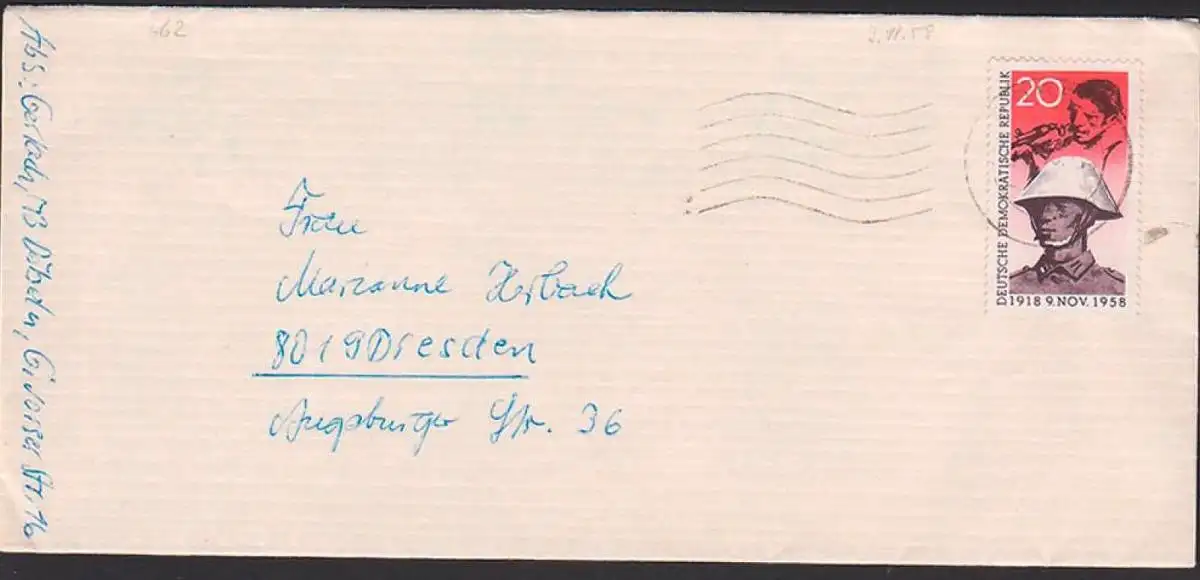 662
9.11.58
20
DEUTSCHE DEMOKRATISCHE REPUBLIK
1918 9. NOV. 1958
Frau
Marianne Herbach
8019 Dresden
Augsburger Str. 36
Abs: Gerlach, 73 Döbeln, Str. 16